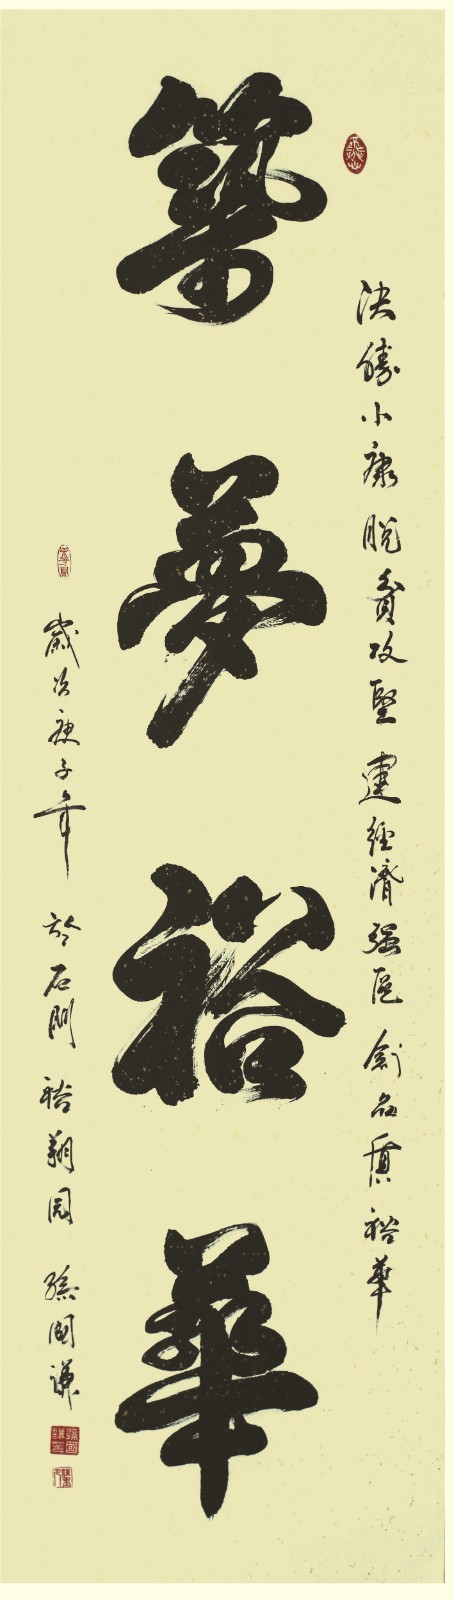 決勝小康脫貧攻堅建經濟強區創品質裕華
築夢裕華
歲次庚子年於石門裕翔園孫國謙